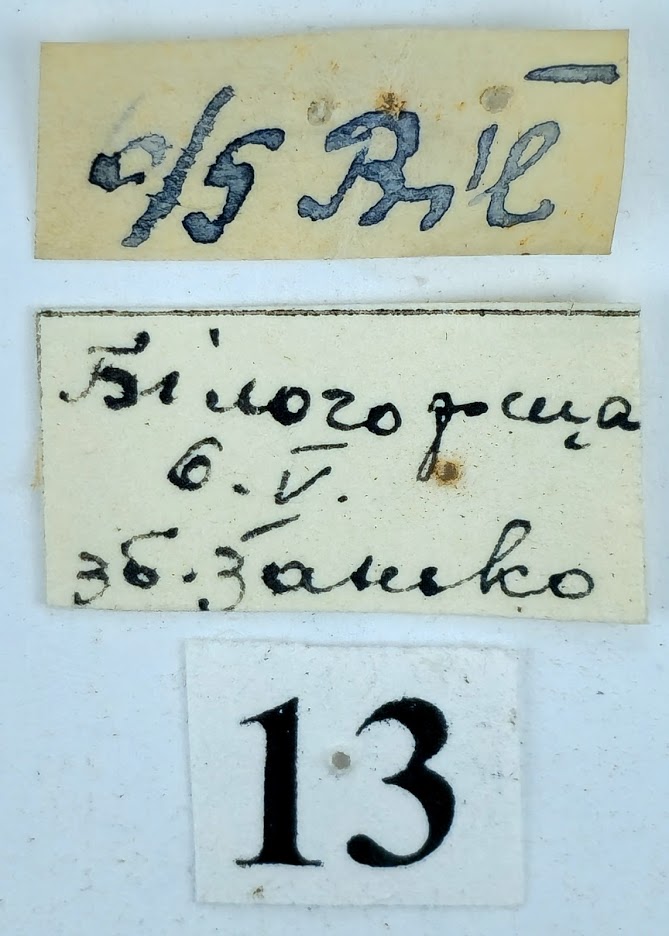 6/5
Білогорща
6. V.
зб. Занько
13